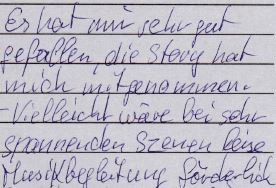 Es hat mir sehr gut
gefallen, die Story hat
mich mitgenommen.
- Vielleicht wäre bei sehr
spannenden Szenen keine
Musikbegleitung förderlich